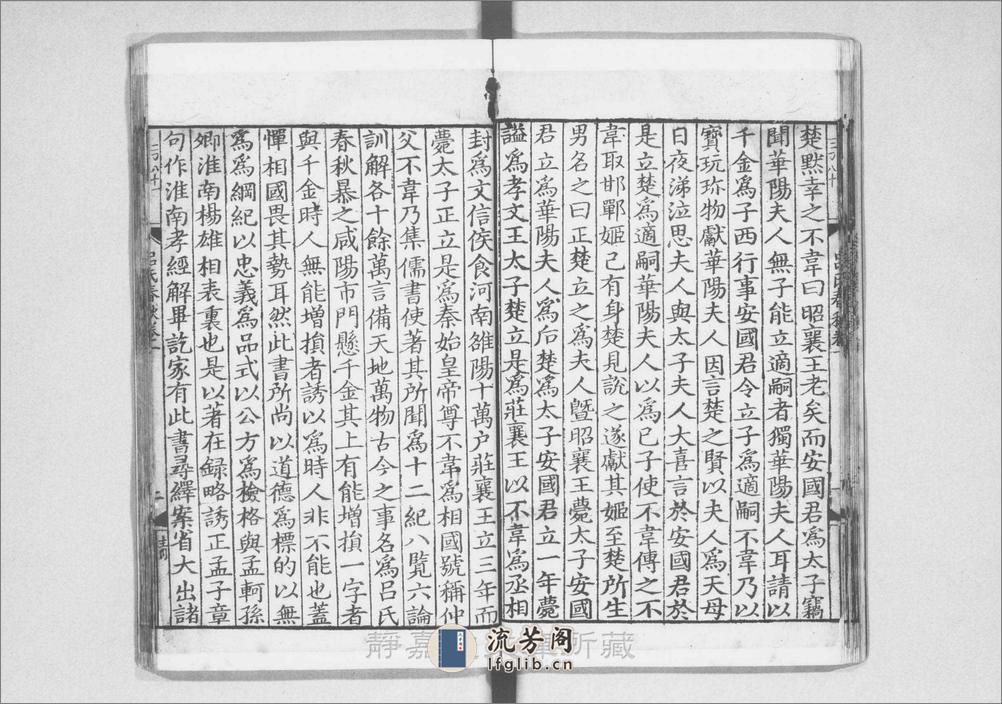 楚黙幸之不韋曰昭襄王老矣而安國君爲太子竊
聞華陽夫人無子能立適嗣者獨華陽夫人耳請以
千金爲子西行事安國君令立子爲適嗣不韋乃以
寶玩珎物獻華陽夫人因言楚之賢以夫人爲天母
日夜涕泣思夫人與太子夫人大喜言於安國君於
是立楚爲適嗣華陽夫人以爲己子使不韋傅之不
韋取邯鄲姬已有身楚見說之遂獻其姬至楚所生
男名之曰正楚立之爲夫人曁昭襄王薨太子安國
君立爲華陽夫人爲后楚爲太子安國君立一年薨
謚爲孝文王太子楚立是爲莊襄王以不韋爲丞相
封爲文信侯食河南雒陽十萬户莊襄王立三年而
薨太子正立是爲秦始皇帝尊不韋爲相國號稱仲
父不韋乃集儒書使著其所聞爲十二紀八覽六論
訓解各十餘萬言備天地萬物古今之事名爲吕氏
春秋暴之咸陽市門懸千金其上有能增損一字者
與千金時人無能增損者誘以爲時人非不能也蓋
憚相國畏其勢耳然此書所尚以道德爲標的以無
爲爲綱紀以忠義爲品式以公方爲檢格與孟軻孫
卿淮南楊雄相表裏也是以著在録略誘正孟子章
句作淮南孝經解畢訖家有此書尋繹案省大出諸
吕氏春秋卷一
二
靜嘉
所藏
流芳阁
lfglib.cn